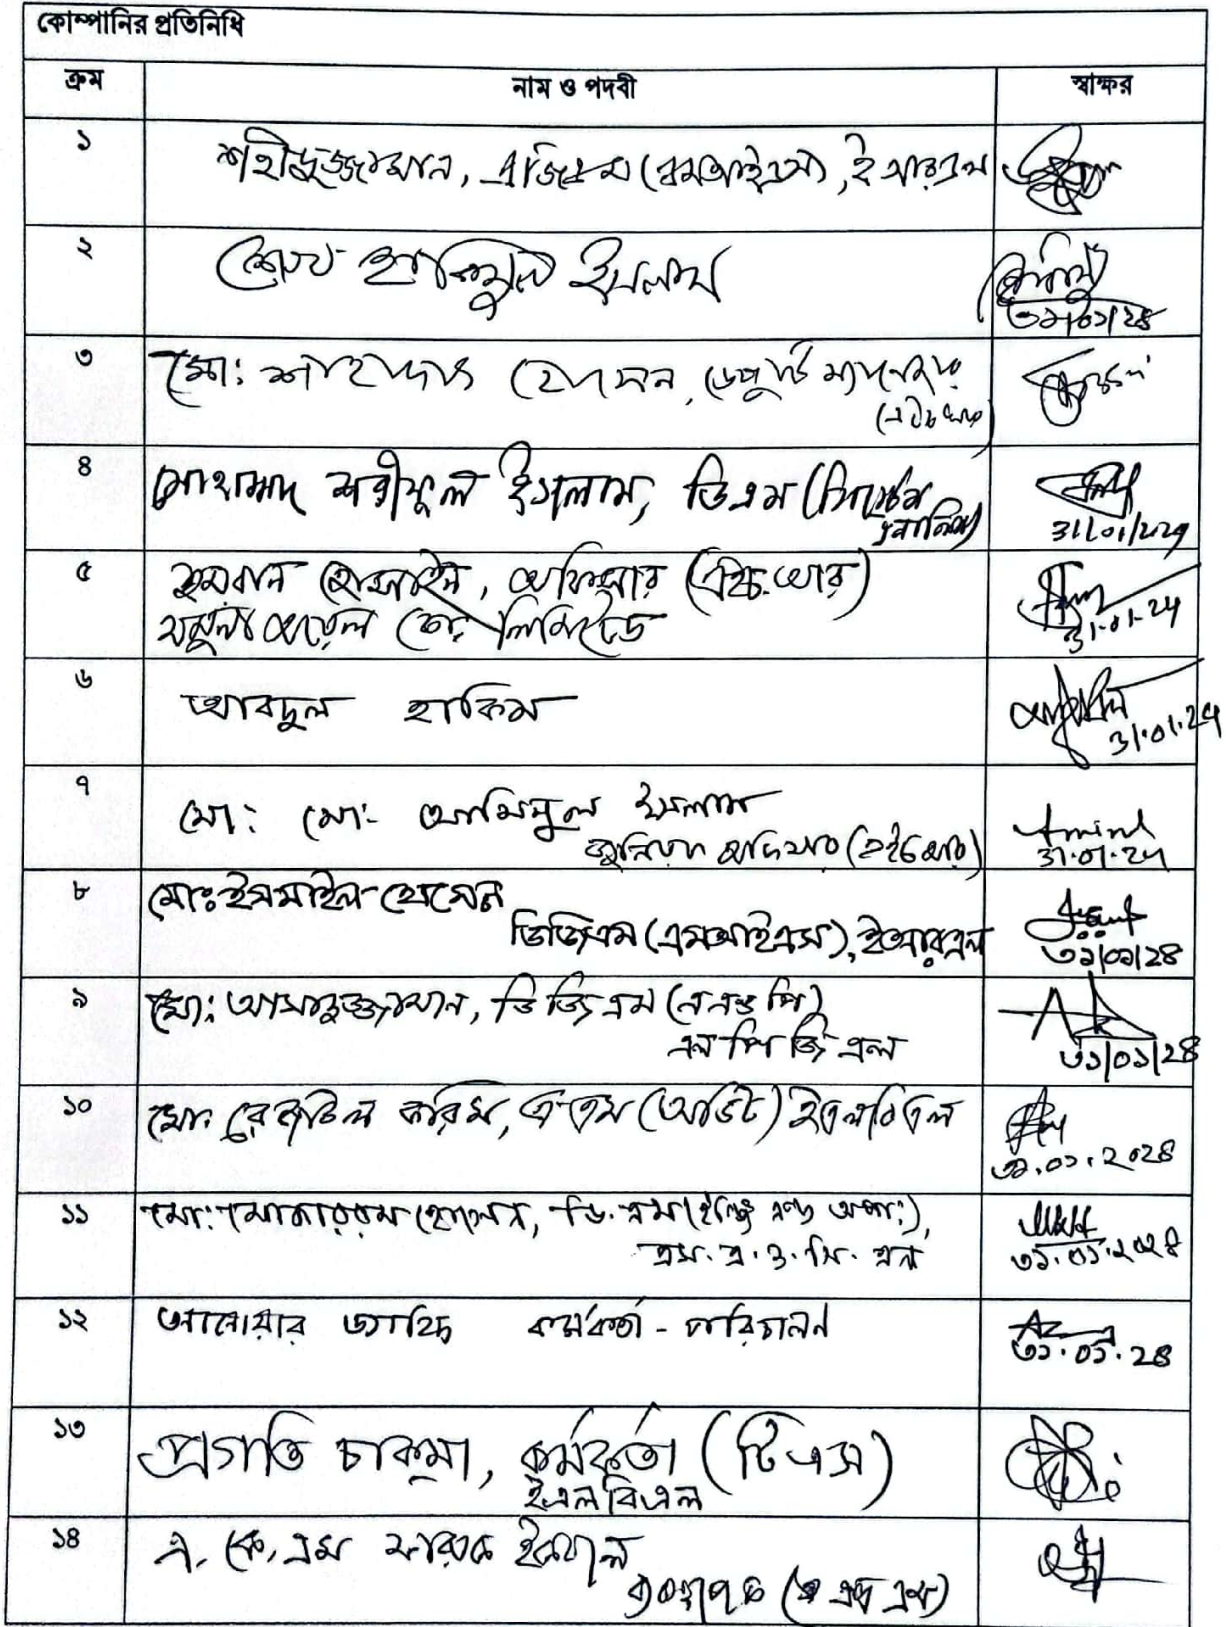 কোম্পানির প্রতিনিধি
ক্রম নাম ও পদবী স্বাক্ষর
১ শহীদুজ্জামান, এজিএম (এমআইএস), ইআরএল
২ শেখ ইসলাম
৩১/০১/২৪
৩ মো: শাহাদাৎ হোসেন, ডেপুটি ম্যানেজার
৪ মোহাম্মদ শরীফুল ইসলাম, ডিএম (সিস্টেম
31/01/24
৫ ইমরান হোসাইন, অফিসার (এইচ.আর)
যমুনা অয়েল কোং লিমিটেড
31.01.24
৬ আবদুল হাকিম
31.01.24
৭ মো: মো: আমিনুল ইসলাম
জুনিয়র অফিসার (এইচআর)
Aminul
31.01.24
৮ মোঃ ইসমাইল হোসেন
ডিজিএম (এমআইএস), ইআরএল
৩১/০১/২৪
৯ মো: আসাদুজ্জামান, ডিজিএম (এএন্ডপি)
এলপিজিএল
৩১/০১/২৪
১০ মো: রেজাউল করিম, এ এম (অডিট) ইএলবিএল
৩১.০১.২০২৪
১১ মো: মোকাররম হোসেন, ডি.এম (ইঞ্জিঃ এন্ড অপাঃ),
এস.এ.ও.সি.এল
৩১.০১.২০২৪
১২ আনোয়ার কর্মকর্তা - পরিচালন
৩১.০১.২৪
১৩ প্রগতি চাকমা, কর্মকর্তা (টিএস)
ইএলবিএল
১৪ এ. কে. এম ফারুক ইকবাল